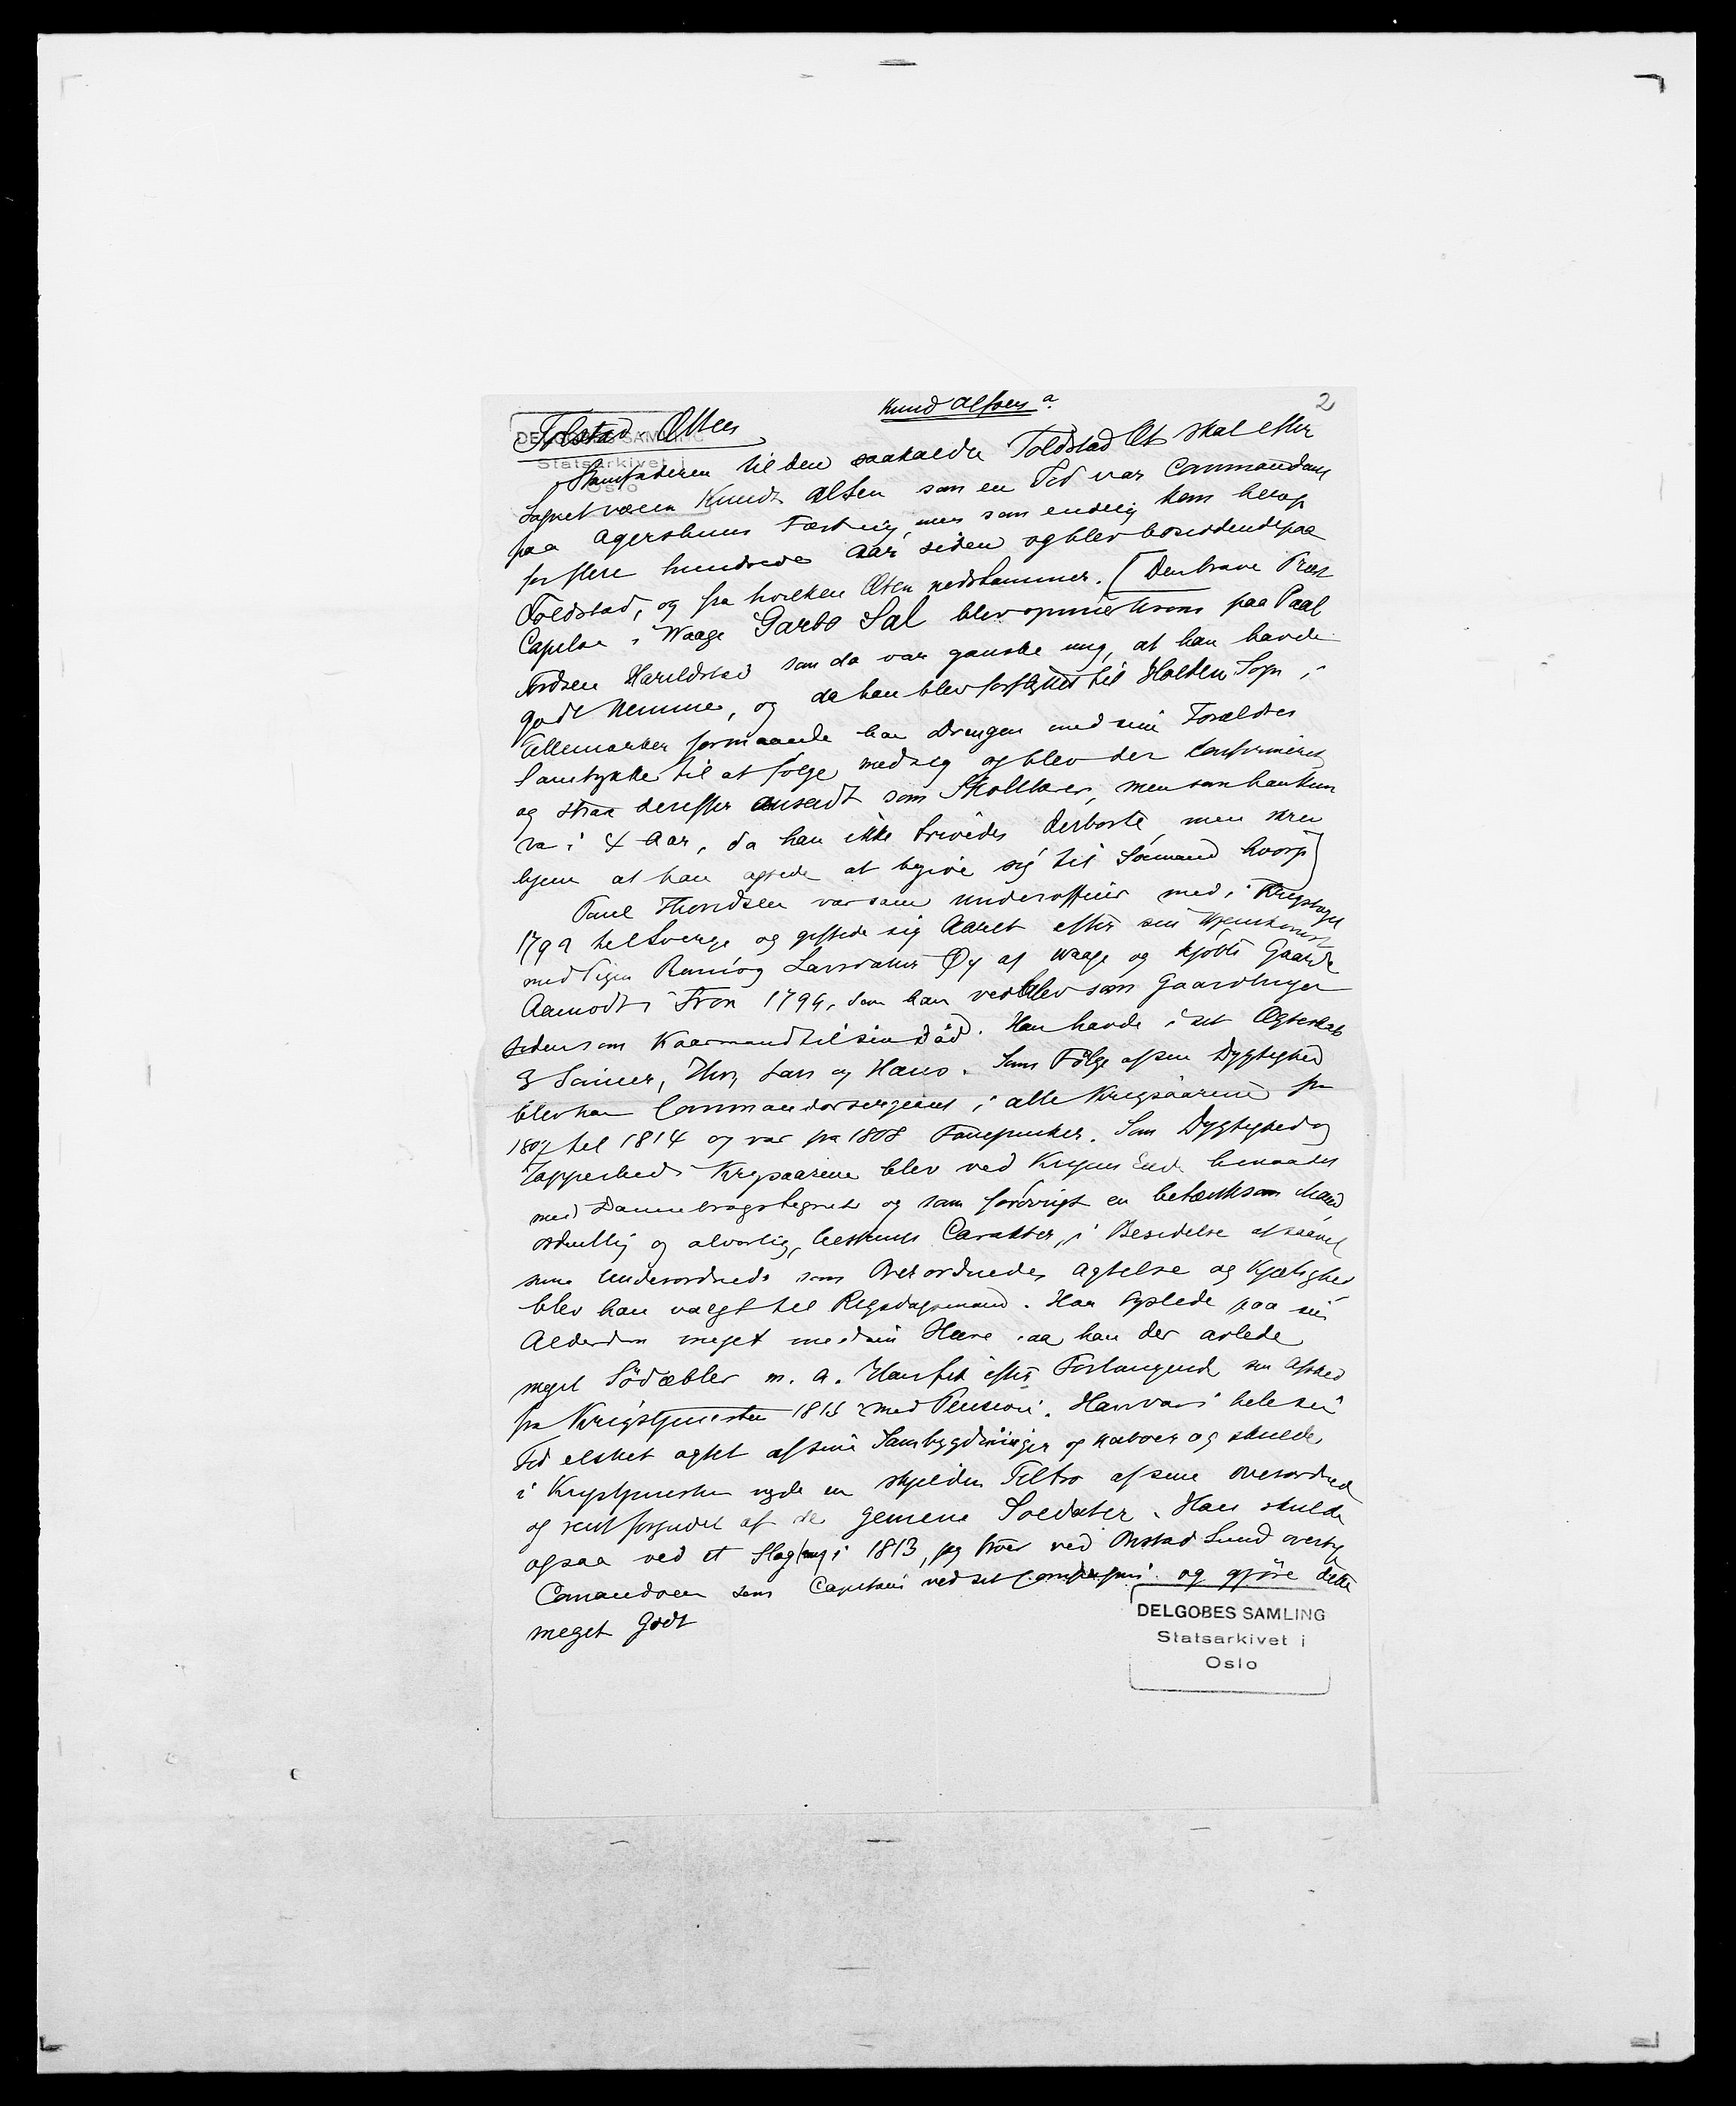 Knud Alfsen a. 2
Tolstad Ætten
DELGOBES SAMLING
Statsarkivet i
Oslo
Stamfaderen til den saakaldte Toldstad Æt skal efter
Sagnet være Knud Alfsen som en Tid var Commandant
paa Agershuus Fæstning, men som endelig kom herop
for flere hundrede Aar siden og blev bosiddende paa
Toldstad, og fra hvilken Ætten nedstammer. [Den brave Præst
Capelan i Waage Garbo Sal blev opmærksom paa Paal
Thordsen Harildstad som da var ganske ung, at han havde
godt Nemme, og da han blev forflyttet til Holden Sogn i
Tellemarken formaaede han Drengen med sine Forældres
Samtykke til at følge med sig og blev der confirmeret
og strax derefter ansadt som Skolelærer, men som han kun
var i 4 Aar, da han ikke trivedes derborte, men skrev
hjem at han agtede at begive sig til Sømand hvorp]
Paul Thordsen var som Underofficer med i Krigstoget
til Sverge og giftede sig Aaret efter sin Hjemkomst
med Pigen Larsdatter Øy af Waage og kjøbte Gaarden
Aamodt i Fron 1794, som han vedblev som Gaardbruger
siden som Kaarmand til sin Död. Han havde i sit Ægteskab
3 Sönner, Thor, Lars og Hans. Som Fölge af sin Dygtighed
blev han Commandersergeant i alle Krigsaarene fra
1807 til 1814 og var fra 1808 Fanejunker. Som Dygtighed og
Tapperhed i Krigsaarene blev ved Krigens Ende benaadet
med Dannebrogstegnet og som forövrigt en betænksom Mand
ordentlig og alvorlig, bestemt Carakter, i Besidelse af saavel
sine Underordnede som Overordnedes Agtelse og Kjærlighed
blev han valgt til Rigsdagsmand. Han syslede paa sin
Alderdom meget med sin Have saa han der avlede
meget Södæbler m. a. Han fik efter Forlangende sin Afsked
fra Krigstjenesten 1815 med Pension. Han var i hele sin
Tid elsket agtet af sine Sambygdninger og Naboer og skulde
i Krigstjenesten nyde en skjelden Tiltro af sine Overordnede
og rent forgudet af de gemene Soldater. Han skulde
ogsaa ved et Slag i 1813, jeg tror ved Sund overtage
Comandoen som Capitain ved sit Compagni og gjöre dette
meget godt
DELGOBES SAMLING
Statsarkivet i
Oslo